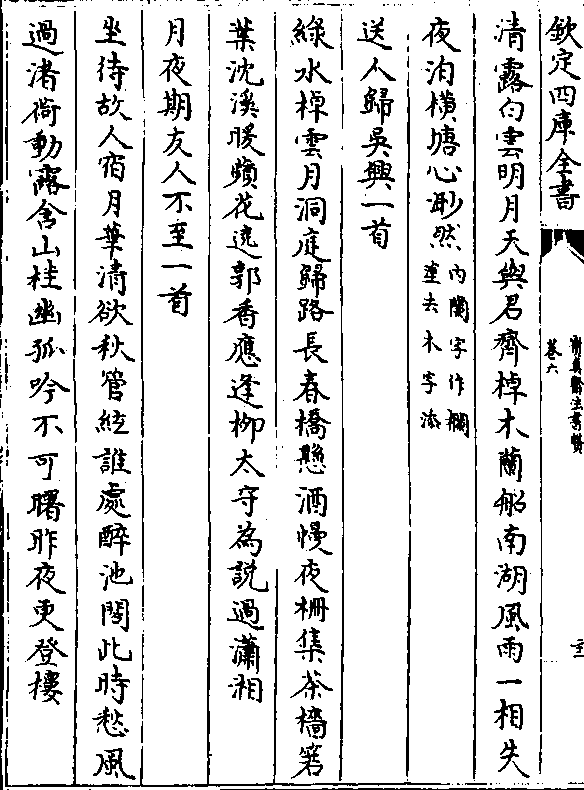 欽定四庫全書
卷六
清露白雲明月天與君齊棹木蘭船南湖風雨一相失
夜泊橫塘心渺然内闌字作欄
連去木字添
送人歸吳興一首
綠水棹雲月洞庭歸路長春橋懸酒幔夜柵集茶檣箬
葉沈溪暖蘋花遶郭香應逢柳太守為說過瀟湘
月夜期友人不至一首
坐待故人宿月華清欲秋管絃誰處醉池閣此時愁風
過渚荷動露含山桂幽孤吟不可曙昨夜更登樓